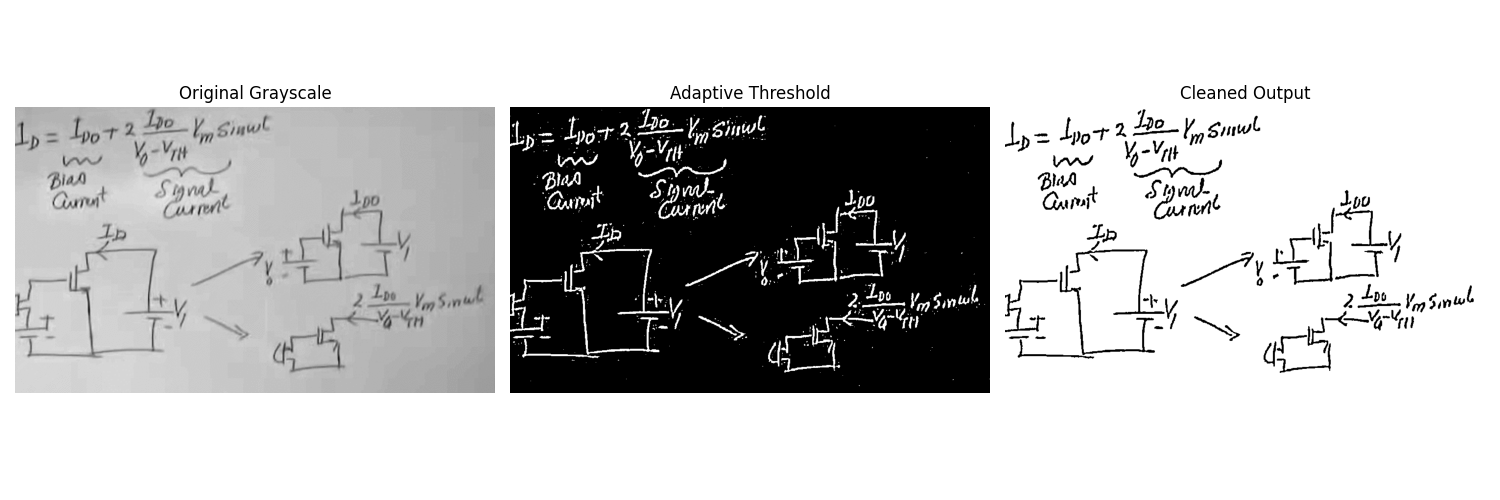 Original Grayscale
I_D = I_DO + 2 I_DO / V_0 - V_TH V_m Sinωt
Bias Current
Signal Current
I_D
I_DO
+
-
V_0
V_1
+
-
V_1
+
-
2 I_DO / V_0 - V_TH V_m Sinωt
Adaptive Threshold
I_D = I_DO + 2 I_DO / V_0 - V_TH V_m Sinωt
Bias Current
Signal Current
I_D
I_DO
+
-
V_0
V_1
+
-
V_1
+
-
2 I_DO / V_0 - V_TH V_m Sinωt
Cleaned Output
I_D = I_DO + 2 I_DO / V_0 - V_TH V_m Sinωt
Bias Current
Signal Current
I_D
I_DO
+
-
V_0
V_1
+
-
V_1
+
-
2 I_DO / V_0 - V_TH V_m Sinωt